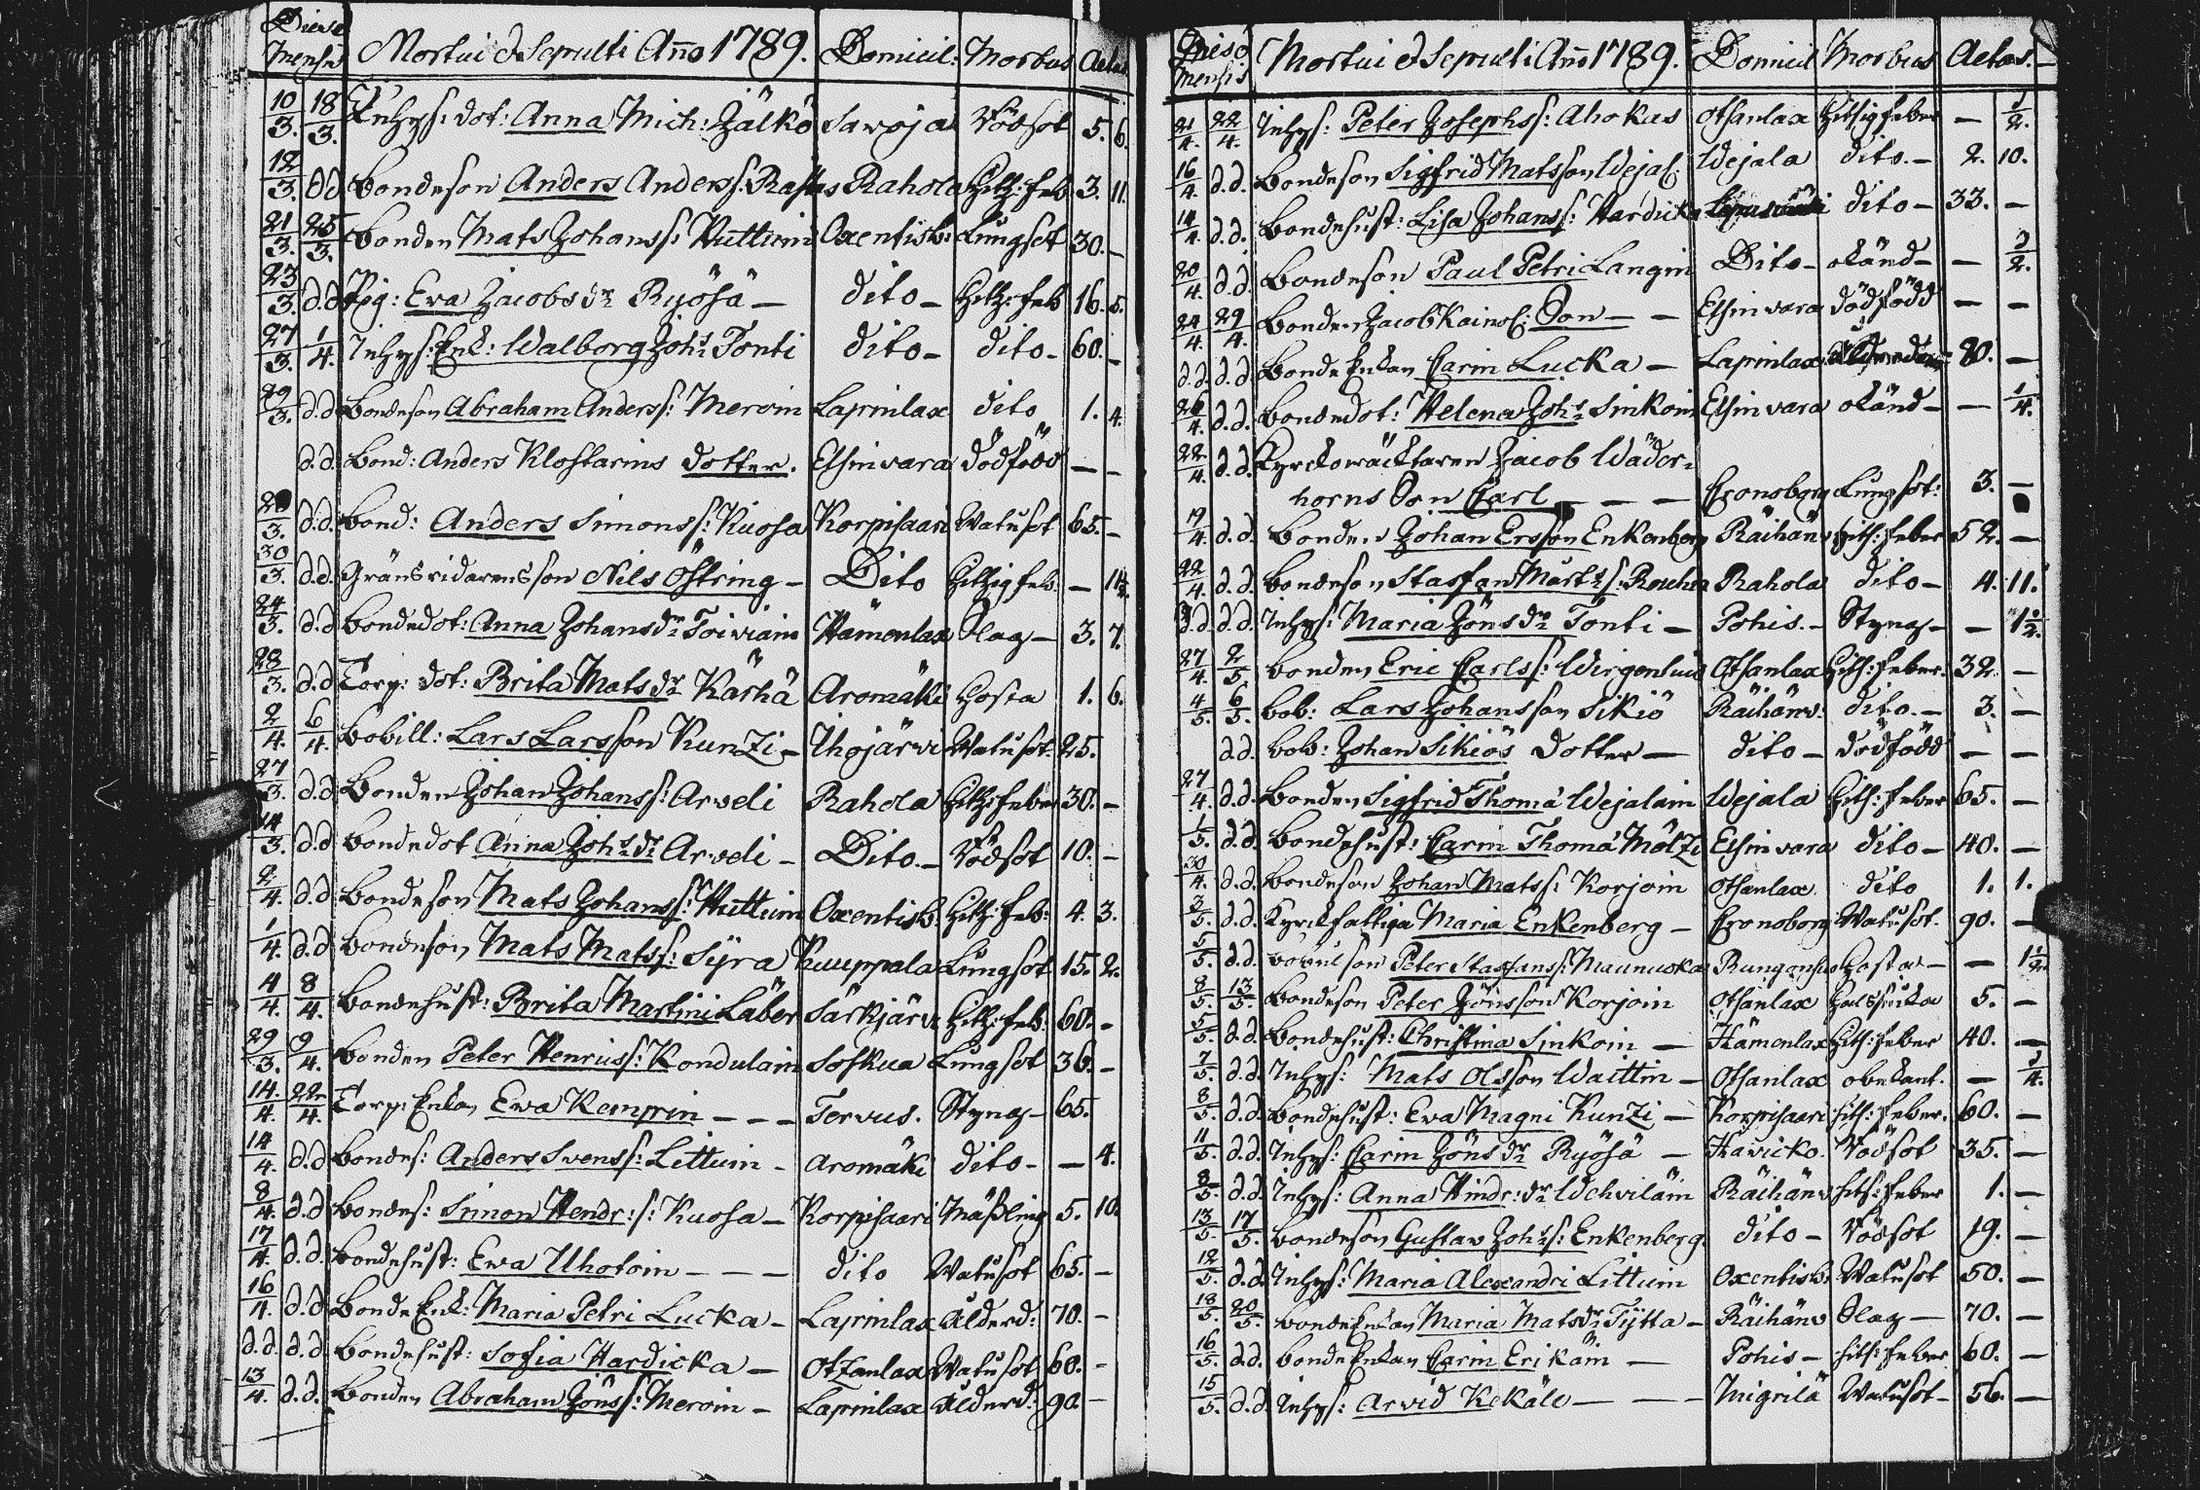 Dies & Mensis Mortui & Sepulti Año 1789. Domicil: Morbus Aetas
10/3. 18/3. Inhys: dot: Anna Mich: Jälkö Savoja Rödsot 5. 6.
12/3. dd Bondeson Anders Anderss: Rastas Rahola Hitz: feb 3. 11.
21/3. 25/3. Bonden Mats Johanss: Huttuin Oxentisb: Lungsot 30. –
23/3. d.d Pig: Eva Jacobsdr Ryösä – dito – Hitz: feb 16. 5.
27/3. 1/4. Inhys: Enk: Walborg Johs Tonti dito – dito – 60. –
29/3. d.d Bondeson Abraham Anderss: Meroin Lapinlax dito 1. 4.
d.d. Bond: Anders Klostarins dotter. Elsinvara dödfödd – –
3. d.d. Bond: Anders Simonss: Kuosa Korpisaari Watusot 65. –
30/3. d.d. Gränsridarensson Nils Östring – Dito Hitzig feb. –
24/3. d.d Bondedot: Anna Johansdr Toiviain Hämenlax Slag – 3. 7.
28/3. d.d Torp: dot: Brita Matsdr Kärhä Aromäki Hosta 1. 6.
2/4. 6/4. Bobill: Lars Larsson Kunzi – Ihojärvi Watusot 25.
27/3. d.d Bonden Johan Johanss: Arveli Rahola Hitz: feber 30. –
14/3. d.d Bondedot Anna Johs dr Arveli – Dito – Rödsot 10. –
2/4. d.d Bondeson Mats Johanss: Huttuin Oxentisb: Hitz: feb: 4. 3.
1/4. d.d Bondeson Mats Matss: Syra Kuuppala Lungsot 15. 2.
4/4. 8/4. Bondehust: Brita Martini Läber Särkjärv: Hitz: feb: 60. –
29/3. 9/4. Bonden Peter Henricss: Kondulain Soskua Lungsot 36. –
14./4. 22/4. Torp: Enkan Ewa Kemprin – – – Tervus. Styng – 65.
14/4. d.d Bondes: Anders Svenss: Littuin – Aromäki dito – – 4.
8/4. d.d Bondes: Simon Hendr: s: Kuosa – Korpisaari Mäßling 5. 10.
17/4. d.d. Bondehust: Ewa Uhotoin – – – dito Watusot 65. –
16/4. d.d Bonde Enk: Maria Petri Lucka – Lapinlax Ålderd: 70. –
d.d. d.d. Bondehust: Sofia Hardicka – Otzanlax Watusot 60. –
13/4. d.d. Bonden Abraham Jönss: Meroin – Lapinlax Ålderd: 90. –
Dies & Mensis Mortui & Sepulti Año 1789. Domicil Morbus Aetas. –
21/4. 22/4. Inhys: Peter Josephss: Ahokas Otsanlax Hitsig feber – 1/2.
16/4. d.d. Bondeson Sigfrid Matsson Wejal: Wejala dito. – 2. 10.
14/4. d.d. Bondehust: Lisa Johanss: Hardicka dito – 33. –
20/4. d.d. Bondeson Paul Petri Langin Dito – okänd – – 1/2.
24/4. 29/4. Bonden Jacob Kainol: Son – – Elsinvara dödfödd – –
d.d. d.d. Bonde Enkan Carin Lucka – Lapinlax 80. –
26/4. d.d. Bondedot: Helena Johs Sinkoin Elsinvara okänd – – 1/4.
22/4. d.d. Kyrckowäcktaren Jacob Wäder-
horns Son Carl – – – Cronoborg Lungsot: 3. –
19/4. d.d. Bonden Johan Ersson Enkenberg Räihänv: Hits: feber 52. –
22/4. d.d. Bondeson Staffan Märts: Rouhia Rahola dito – 4. 11.
d.d. d.d. Inhys: Maria Jönsdr Tonti – Pohis. – Styng – – 1 1/2.
27/4. 2/5. Bonden Eric Carlss: Wirgonlius Otsanlax Hits: feber. 32. –
4/5. 6/5. bob: Lars Johansson Sikiö Räihänv: dito. – 3. –
d.d. bob: Johan Sikiös Dotter – dito – dödfödd – –
27/4. d.d. Bonden Sigfrid Thomæ Wejalain Wejala Hits: feber 65. –
1/5. d.d. Bondehust: Carin Thomæ Mölzi Elsinvara dito – 40. –
30/4. d.d. Bondeson Johan Matss: Korjoin Otsanlax dito 1. 1.
3/5. d.d. Kyrckfattiga Maria Enkenberg – Cronoborg Watusot. 90. –
5/5. d.d. Bobils son Peter Staffanss: Maunuska Hosta – – 1 1/2.
8/5. 13/5. Bondeson Peter Jönsson Korjoin Otsanlax Halssiuka 5. –
5/5. d.d. Bondehust: Christina Sinkoin – Hämenlax Hits: feber 40. –
7/5. d.d. Inhys: Mats Olsson Waittin – Otsanlax obekant. – 1/4.
8/5. d.d. Bondehust: Eva Magni Kunzi – Korpisaari hits: feber. 60. –
11/5. d.d. Inhys: Carin Jönsdr Ryösä – Haricko. Rödsot 35. –
8/5. d.d. Inhys: Anna Hindr: dr Wehviläin Räihänv hits: feber 1. –
13/5. 17/5. Bondeson Gustav Johs: Enkenberg. dito – Rödsot 19. –
12/5. d.d. Inhys: Maria Alexandri Littuin Oxentisb: Watusot 50. –
18/5. 20/5. Bonde Enkan Maria Matsdr Tÿtta – Räihänv Slag – 70. –
16/5. d.d. Bonde Enkan Carin Erikäin – Pohis – hits: feber 60. –
15/5. d.d. Inhys: Arvid Kekäle – – – Migrilä Watusot – 56. –